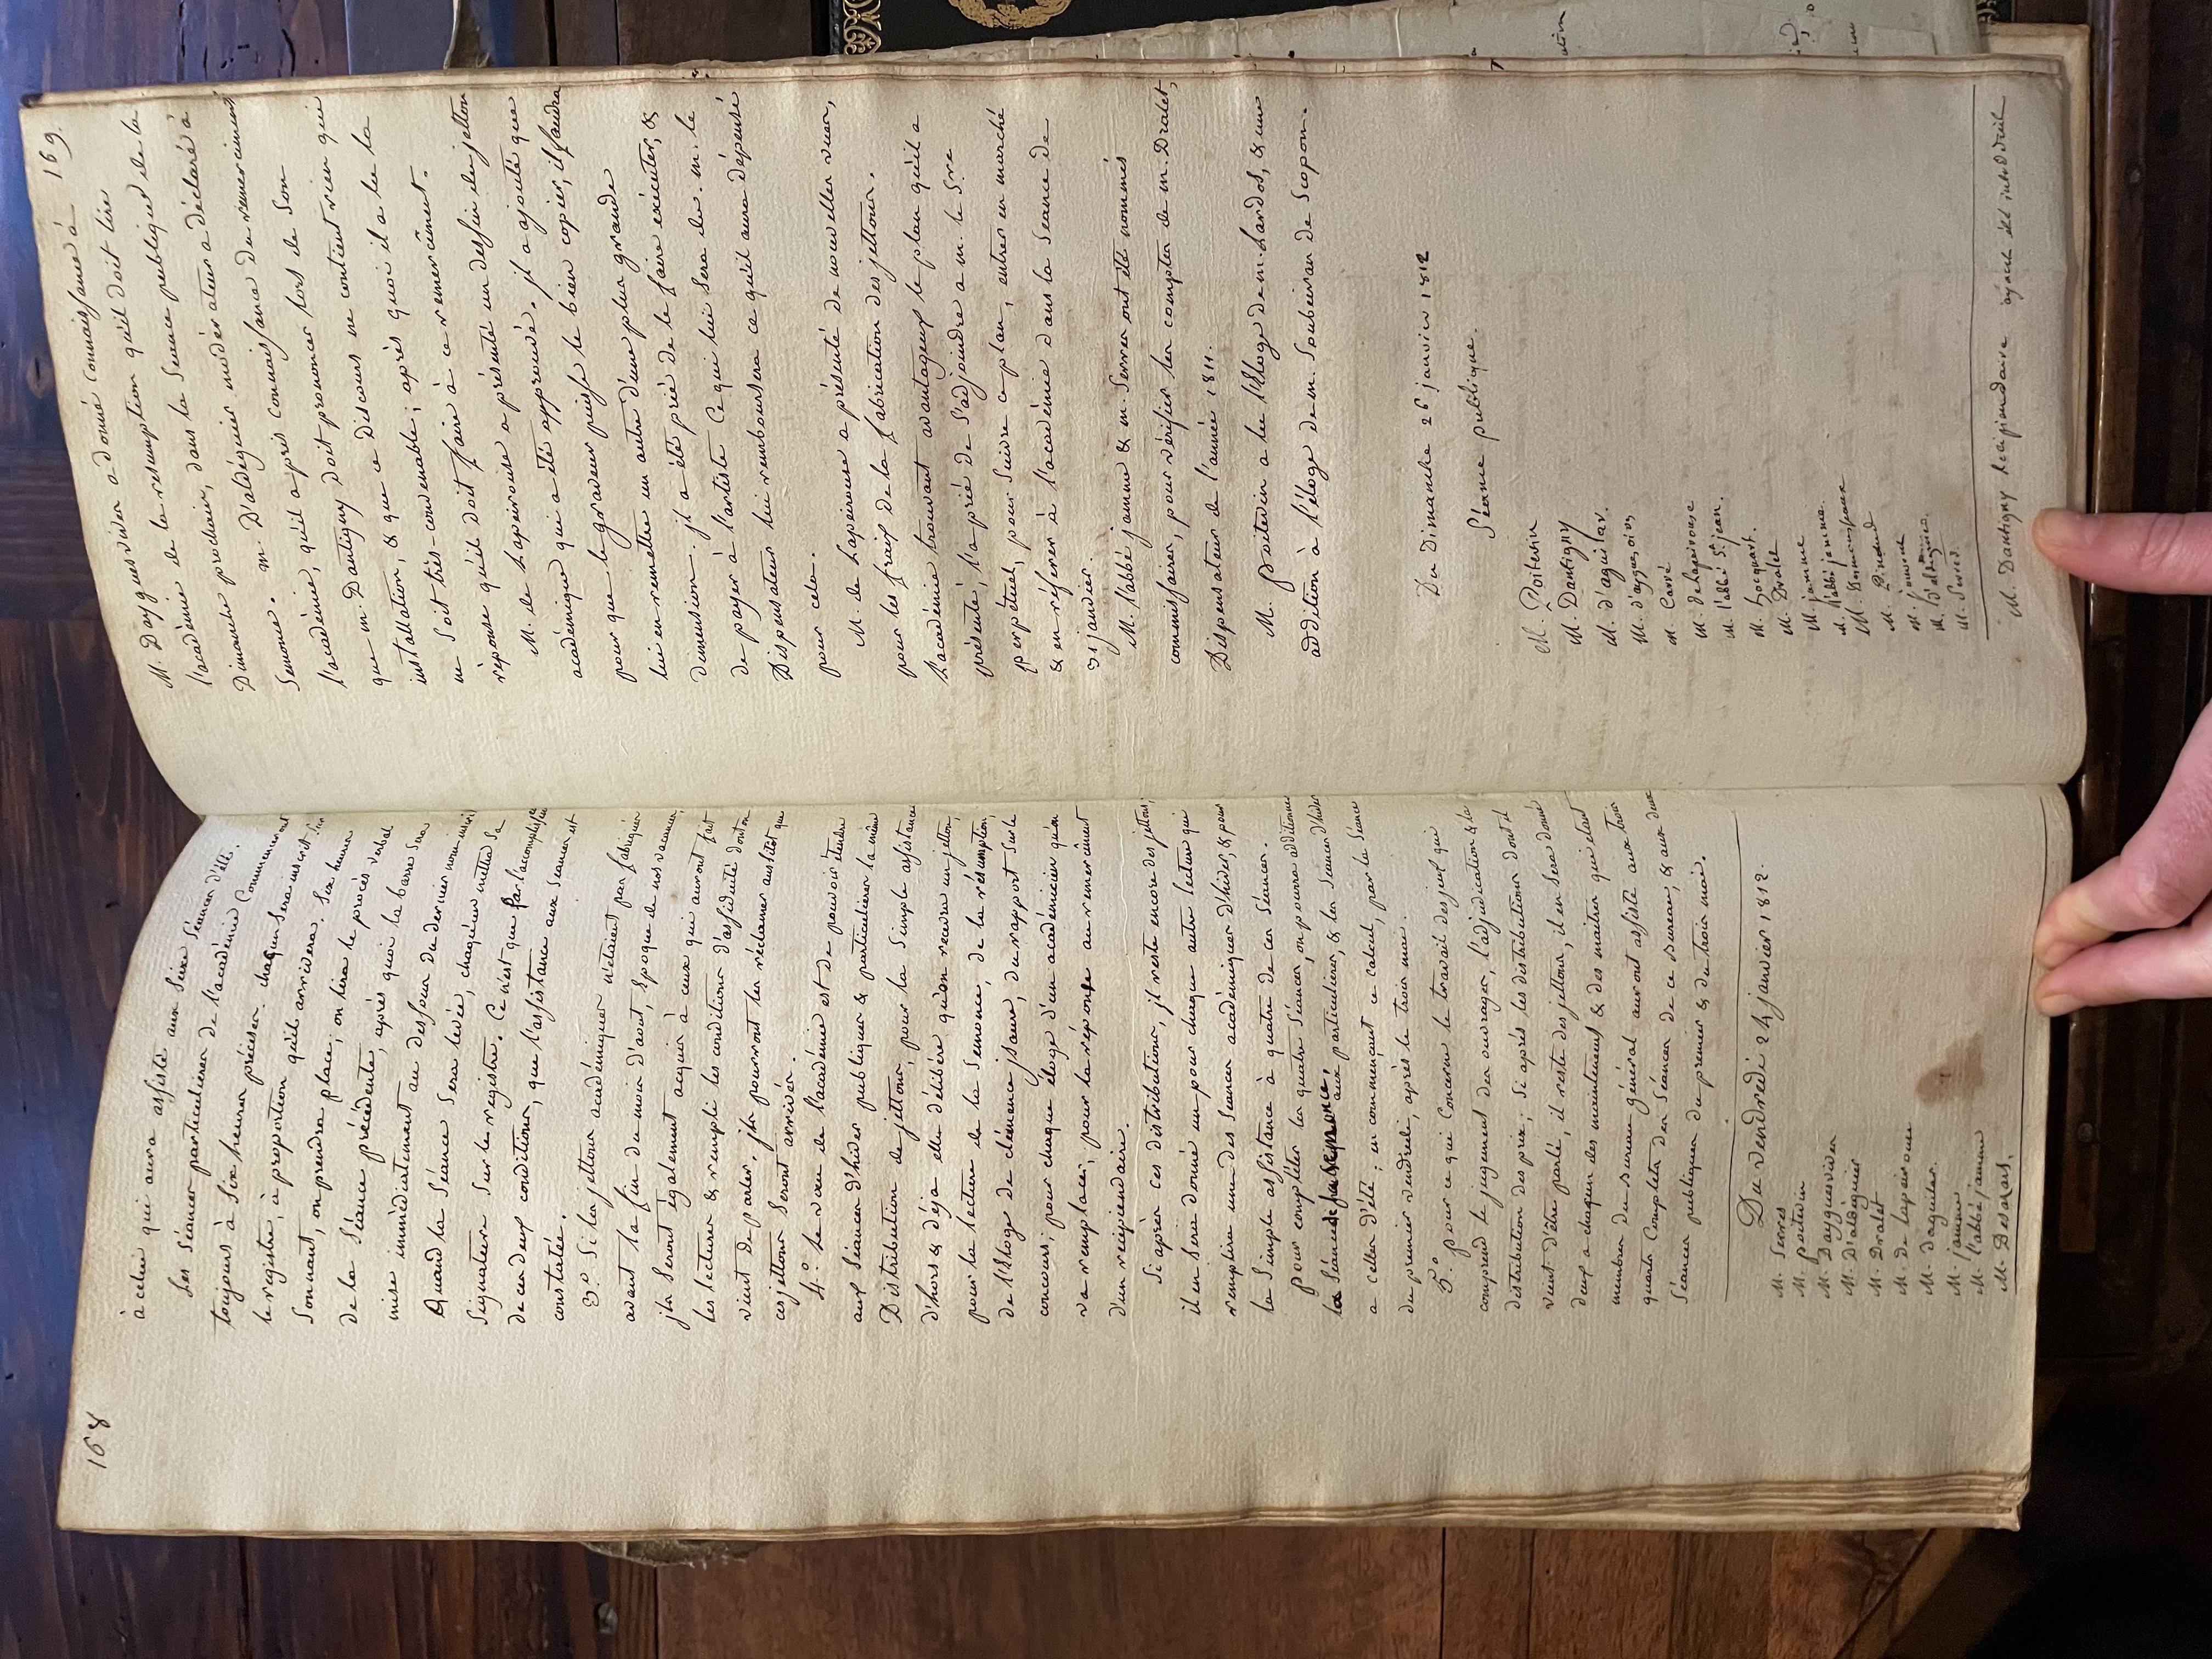 168
à celui qui aura assisté aux seize séances d'été.
Les séances particulieres de l'académie commenceront
toujours à six heures précises. chaqun sera inscrit sur
le registre, à proportion qu'il arrivera. Six heures
sonnant, on prendra place; on lira le procès verbal
de la séance précédente, après quoi la barre sera
mise immédiatement au dessous du dernier nom inscrit
Quand la séance sera levée, chaqu'un mettra sa
signature sur le registre. Ce n'est que par l'accomplissem
de ces deux conditions, que l'assistance aux séances est
constatée.
3.° Si les jettons académiques n'étaient pas fabriqués
avant la fin du mois d'aout, époque de nos vacances,
ils seront également acquis à ceux qui auront fait
les lectures & rempli les conditions d'assiduité dont on
vient de parler. ils pourront les réclamer aussitot que
ces jettons seront arrivés.
4.° Le vœu de l'académie est de pouvoir étendre
aux séances d'hiver publiques & particulieres la même
Distribution de jettons, pour la simple assistance
d'hors & déja elle délibère qu'on recevra un jetton,
pour la lecture de la Semonce, de la résumption,
de l'éloge de clémence isaure, du rapport sur le
concours; pour chaque éloge d'un académicien qu'on
va remplacer, pour la réponse au remercîment
d'un récipiendaire.
Si après ces distributions, il reste encore des jettons,
il en sera donné un pour chaque autre lecture qui
remplira une des séances académiques d'hiver, & pour
la simple assistance à quatre de ces séances.
Pour completter les quatre séances, on pourra additionner
les séances aux particulieres, & les séances d'hiver
a celles d'été; en commençant ce calcul, par la séance
du premier vendredi, après le trois mai.
5.° pour ce qui concerne le travail des jeux qui
comprend le jugement des ouvrages, l'adjudication & la
distribution des prix; si après les distributions dont il
vient d'être parlé, il reste des jettons, il en sera donné
deux a chaqun des mainteneurs & des maitres qui etant
membres du bureau général auront assisté aux trois
quarts complets des séances de ce bureau, & aux deux
séances publiques du premier & du trois mai.
Du vendredi 24 janvier 1812.
M. Serres
M. poitevin
M. Dayguesvives
M. D'aldéguier
M. Dralet
M. de Lapeirouse
M. Daguilar.
M. jamme
M. l'abbé jamme
M. Desazars.
169.
M. Dayguesvives a donné connaissance à
l'académie de la resumption qu'il doit lire
Dimanche prochain, dans la séance publique de la
Semonce. M. D'aldéguier modérateur a déclaré à
l'académie, qu'il a pris connaissance du remerciment
que m. Dantigny doit prononcer lors de son
installation, & que ce discours ne contient rien qui
ne soit très-convenable; après quoi il a lu la
réponse qu'il doit faire à ce remercîment.
M. de Lapeirouse a présenté un dessin du jetton
académique qui a été approuvé. il a ajouté que
pour que le graveur puisse le bien copier, il faudra
lui en remettre un autre d'une plus grande
dimension. il a été prié de le faire exécuter, &
de payer à l'artiste ce qui lui sera du. m. le
Dispensateur lui remboursera ce qu'il aura dépensé
pour cela.
M. de Lapeirouse a présenté de nouvelles vues,
pour les fraix de la fabrication des jettons.
L'académie trouvant avantageux le plan qu'il a
présenté, l'a prié de s'adjoindre a m. le Sre
perpétuel, pour suivre ce plan, entrer en marché
& en référer à l'académie dans la séance de
31 janvier.
M. l'abbé jamme & m. Serres ont été nommés
commissaires, pour vérifier les comptes de m. Dralet,
Dispensateur de l'année 1811.
M. poitevin a lu l'éloge de m. Lardos, & une
addition à l'éloge de m. Soubeiran de Scopon.
Du Dimanche 26 janvier 1812
Séance publique.
M. Poitevin
M. Dantigny
M. d'aguilar.
M. d'ayguesvives
M. Carré
M. de lapeirouse
M. l'abbé St. jean.
M. hocquart.
M. Dralet
M. jamme
M. l'abbé jamme.
M. Pinaud
M. jouvent
M. D'aldéguier.
M. Serres.
M. Dantigny Récipiendaire ayant été introduit